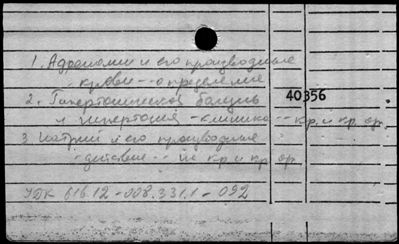 1. Адреналин и его производные
крови -- определение
2. Гипертоническая болезнь
40356
и гипертония - клиника -- кр. и кр. ор.
3 натрий и его производные
- действие -- и кр. и кр. ор.
УДК 616.12-008.331.1-092